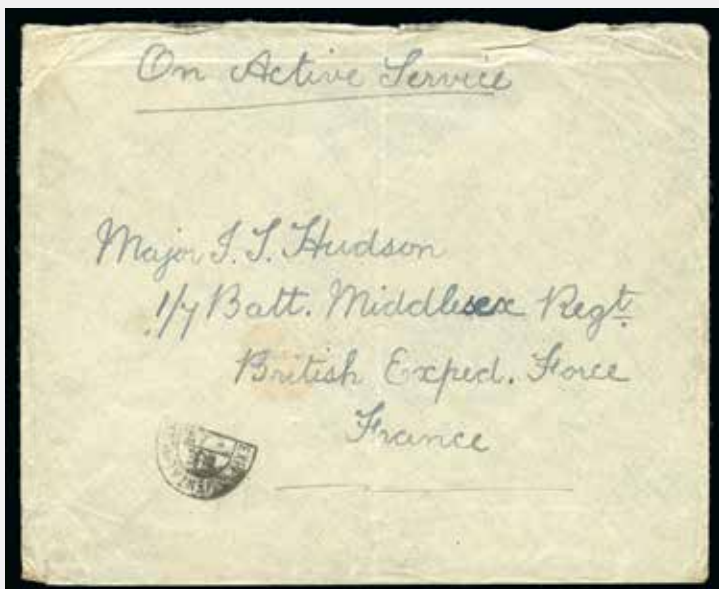 On Active Service
Major I. T. Hudson
1/7 Batt. Middlesex Regt.
British Exped. Force
France